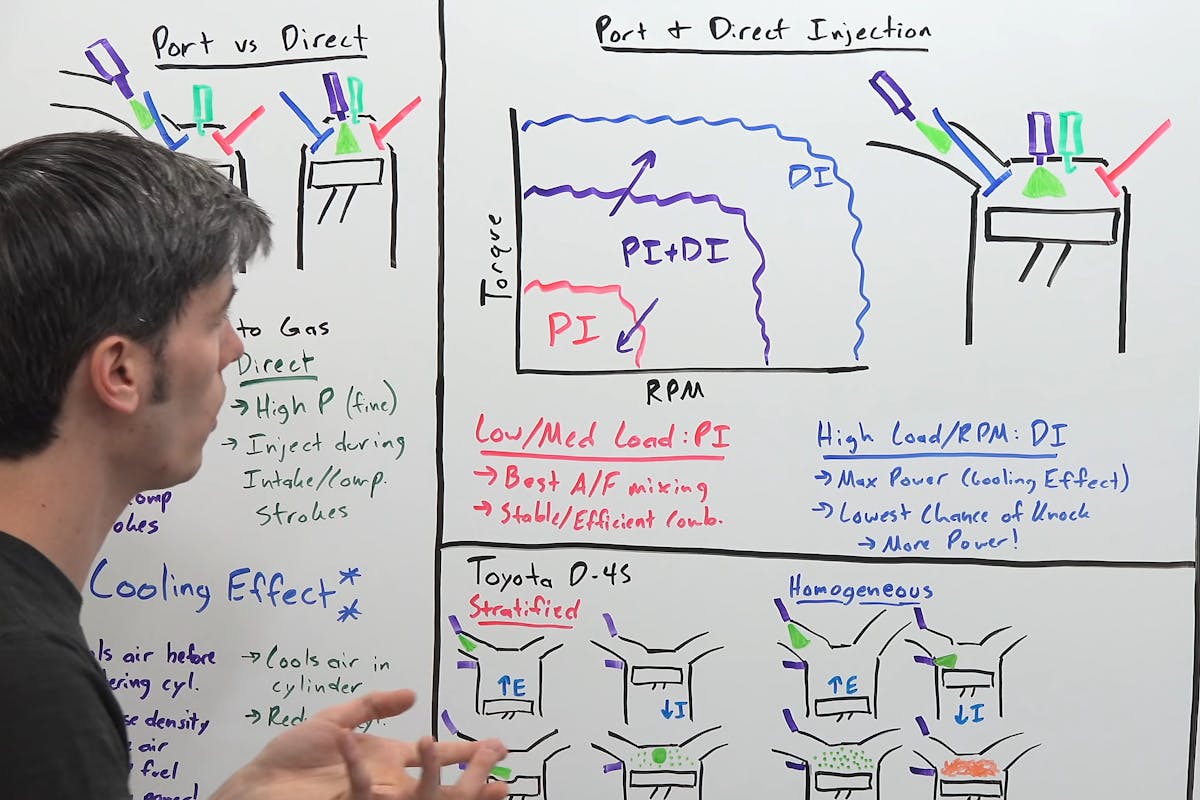 Port vs Direct
to Gas
Direct
→ High P (fine)
→ Inject during
Intake/Comp.
Strokes
Cooling Effect**
air before
cyl.
density
air
fuel
→ Cools air in
cylinder
Port & Direct Injection
Torque
DI
PI+DI
PI
RPM
Low/Med Load: PI
→ Best A/F mixing
→ Stable/Efficient Comb.
High Load/RPM: DI
→ Max Power (Cooling Effect)
→ Lowest Chance of Knock
→ More Power!
Toyota D-4S
Stratified
↑E
↓I
Homogeneous
↑E
↓I